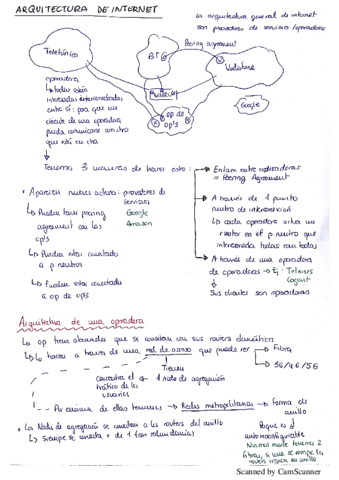 ARQUITECTURA DE INTERNET
La arquitectura general de internet
son proveedores de servicios/operadores
Peering agreement
Telefónica
BTG
Vodafone
operadora
Google
op de
op's
↳ todas están
interconectadas
entre sí: para que un
cliente de una operadora
pueda comunicarse con otro
que está en otra
Tenemos 3 maneras de hacer esto:
→ Enlace entre operadoras
= Peering Agreement
→ A través de 1 punto
neutro de interconexión
↳ cada operadora sitúa un
router en el p. neutro que
interconecta todas con todas
→ A través de una operadora
de operadoras → Ej: Telxius
Cogent
Sus clientes son operadoras
• Aparecen nuevos actores: proveedores de
servicios
Google
Amazon
↳ Pueden tener peering
agreement con los
op's
↳ Pueden estar conectados
a p. neutros
↳ Pueden estar conectados
a op de op's
Arquitectura de una operadora
La op tiene abonados que se conectan con sus routers domésticos
↳ Lo hacen a través de una red de acceso que puede ser
→ Fibra
→ 3G/4G/5G
Tienen
1 nodo de agregación
concentra el
tráfico de los
usuarios
→ Por encima de ellas tenemos → Redes metropolitanas → forma de
anillo
• Los Nodos de agregación se conectan a los routers del anillo
↳ Siempre se conecta a + de 1 (con redundancia)
Porque es
autoreconfigurable
Normalmente tenemos 2
fibras, si una se rompe los
routers siguen en anillo
Scanned by CamScanner